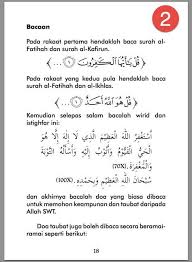 2
Bacaan
Pada rakaat pertama hendaklah baca surah al-
Fatihah dan surah al-Kafirun.
﴿ قُلْ يَٰٓأَيُّهَا ٱلْكَٰفِرُونَ ۝١ ... ﴾
Pada rakaat yang kedua pula hendaklah baca
surah al-Fatihah dan al-Ikhlas.
﴿ قُلْ هُوَ ٱللَّهُ أَحَدٌ ۝١ ... ﴾
Kemudian selepas salam bacalah wirid dan
istighfar ini:
أَسْتَغْفِرُ اللهَ الْعَظِيْمَ الَّذِي لَا إِلَهَ إِلَّا هُوَ
الْحَيُّ الْقَيُّوْمُ وَأَتُوْبُ إِلَيْهِ وَأَسْأَلُهُ التَّوْبَةَ
وَالْمَغْفِرَةَ. (70X)
سُبْحَانَ اللهِ الْعَظِيْمِ وَبِحَمْدِهِ. (100X)
dan akhirnya bacalah doa yang biasa dibaca
untuk memohon keampunan dan taubat daripada
Allah SWT.
Doa taubat juga boleh dibaca secara beramai-
ramai seperti berikut:
18